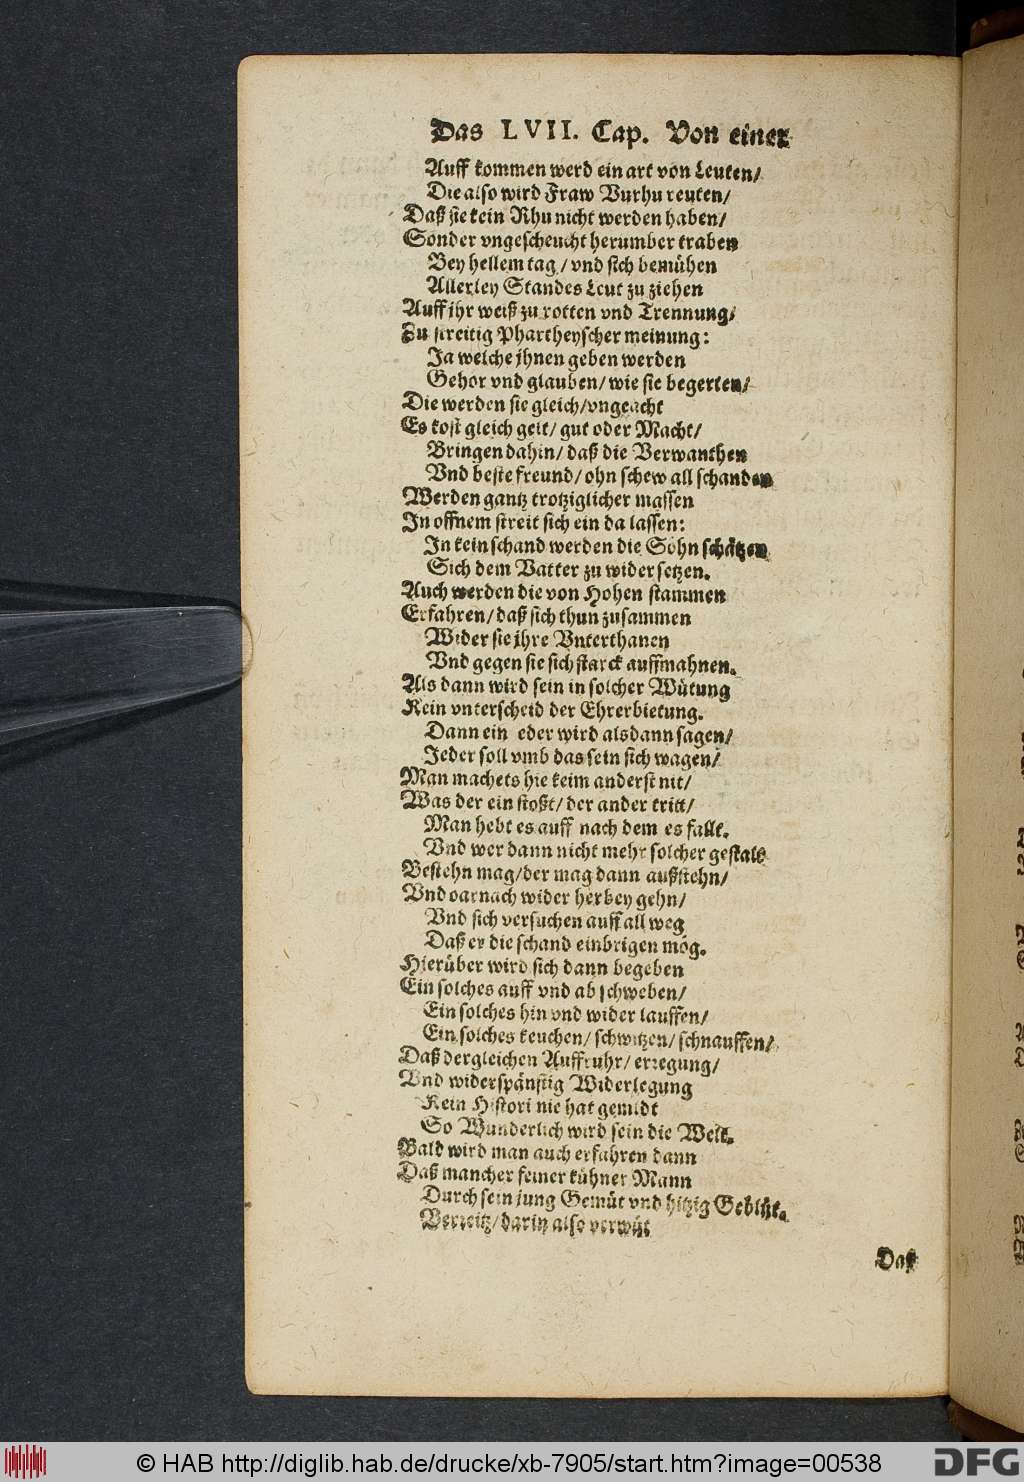 Das LVII. Cap. Von einer
Auff kommen werd ein art von Leuten/
Die also wird Fraw Vurhu reuten/
Daß sie kein Rhu nicht werden haben/
Sonder vngescheucht herumber traben
Bey hellem tag/ vnd sich bemühen
Allerley Standes Leut zu ziehen
Auff jhr weiß zu rotten vnd Trennung/
Zu streitig Phartheyscher meinung:
Ja welche jhnen geben werden
Gehor vnd glauben/ wie sie begerten/
Die werden sie gleich/vngeacht
Es kost gleich gelt/ gut oder Macht/
Bringen dahin/ daß die Verwanthen
Vnd beste freund/ ohn schew all schanden
Werden gantz trotziglicher massen
In offnem streit sich ein da lassen:
In kein schand werden die Söhn schätzen
Sich dem Vatter zu wider setzen.
Auch werden die von Hohen stammen
Erfahren/ daß sich thun zusammen
Wider sie jhre Vnterthanen
Vnd gegen sie sich starck auffmahnen.
Als dann wird sein in solcher Wütung
Kein vnterscheid der Ehrerbietung.
Dann ein eder wird alsdann sagen/
Jeder soll vmb das sein sich wagen/
Man machets hie keim anderst nit/
Was der ein stoßt/ der ander tritt/
Man hebt es auff nach dem es fallt.
Vnd wer dann nicht mehr solcher gestalt
Bestehn mag/der mag dann außstehn/
Vnd darnach wider herbey gehn/
Vnd sich versuchen auff all weg
Daß er die schand einbrigen mög.
Hierüber wird sich dann begeben
Ein solches auff vnd ab schweben/
Ein solches hin vnd wider lauffen/
Ein solches keuchen/ schwitzen/ schnauffen/
Daß dergleichen Auffruhr/ erregung/
Vnd widerspänstig Widerlegung
Kein Histori nie hat gemildt
So Wunderlich wird sein die Welt.
Bald wird man auch erfahren dann
Daß mancher feiner kühner Mann
Durch sein jung Gemüt vnd hitzig Geblüt.
Verreitz/ darin also verwüt
Daß
© HAB http://diglib.hab.de/drucke/xb-7905/start.htm?image=00538
DFG